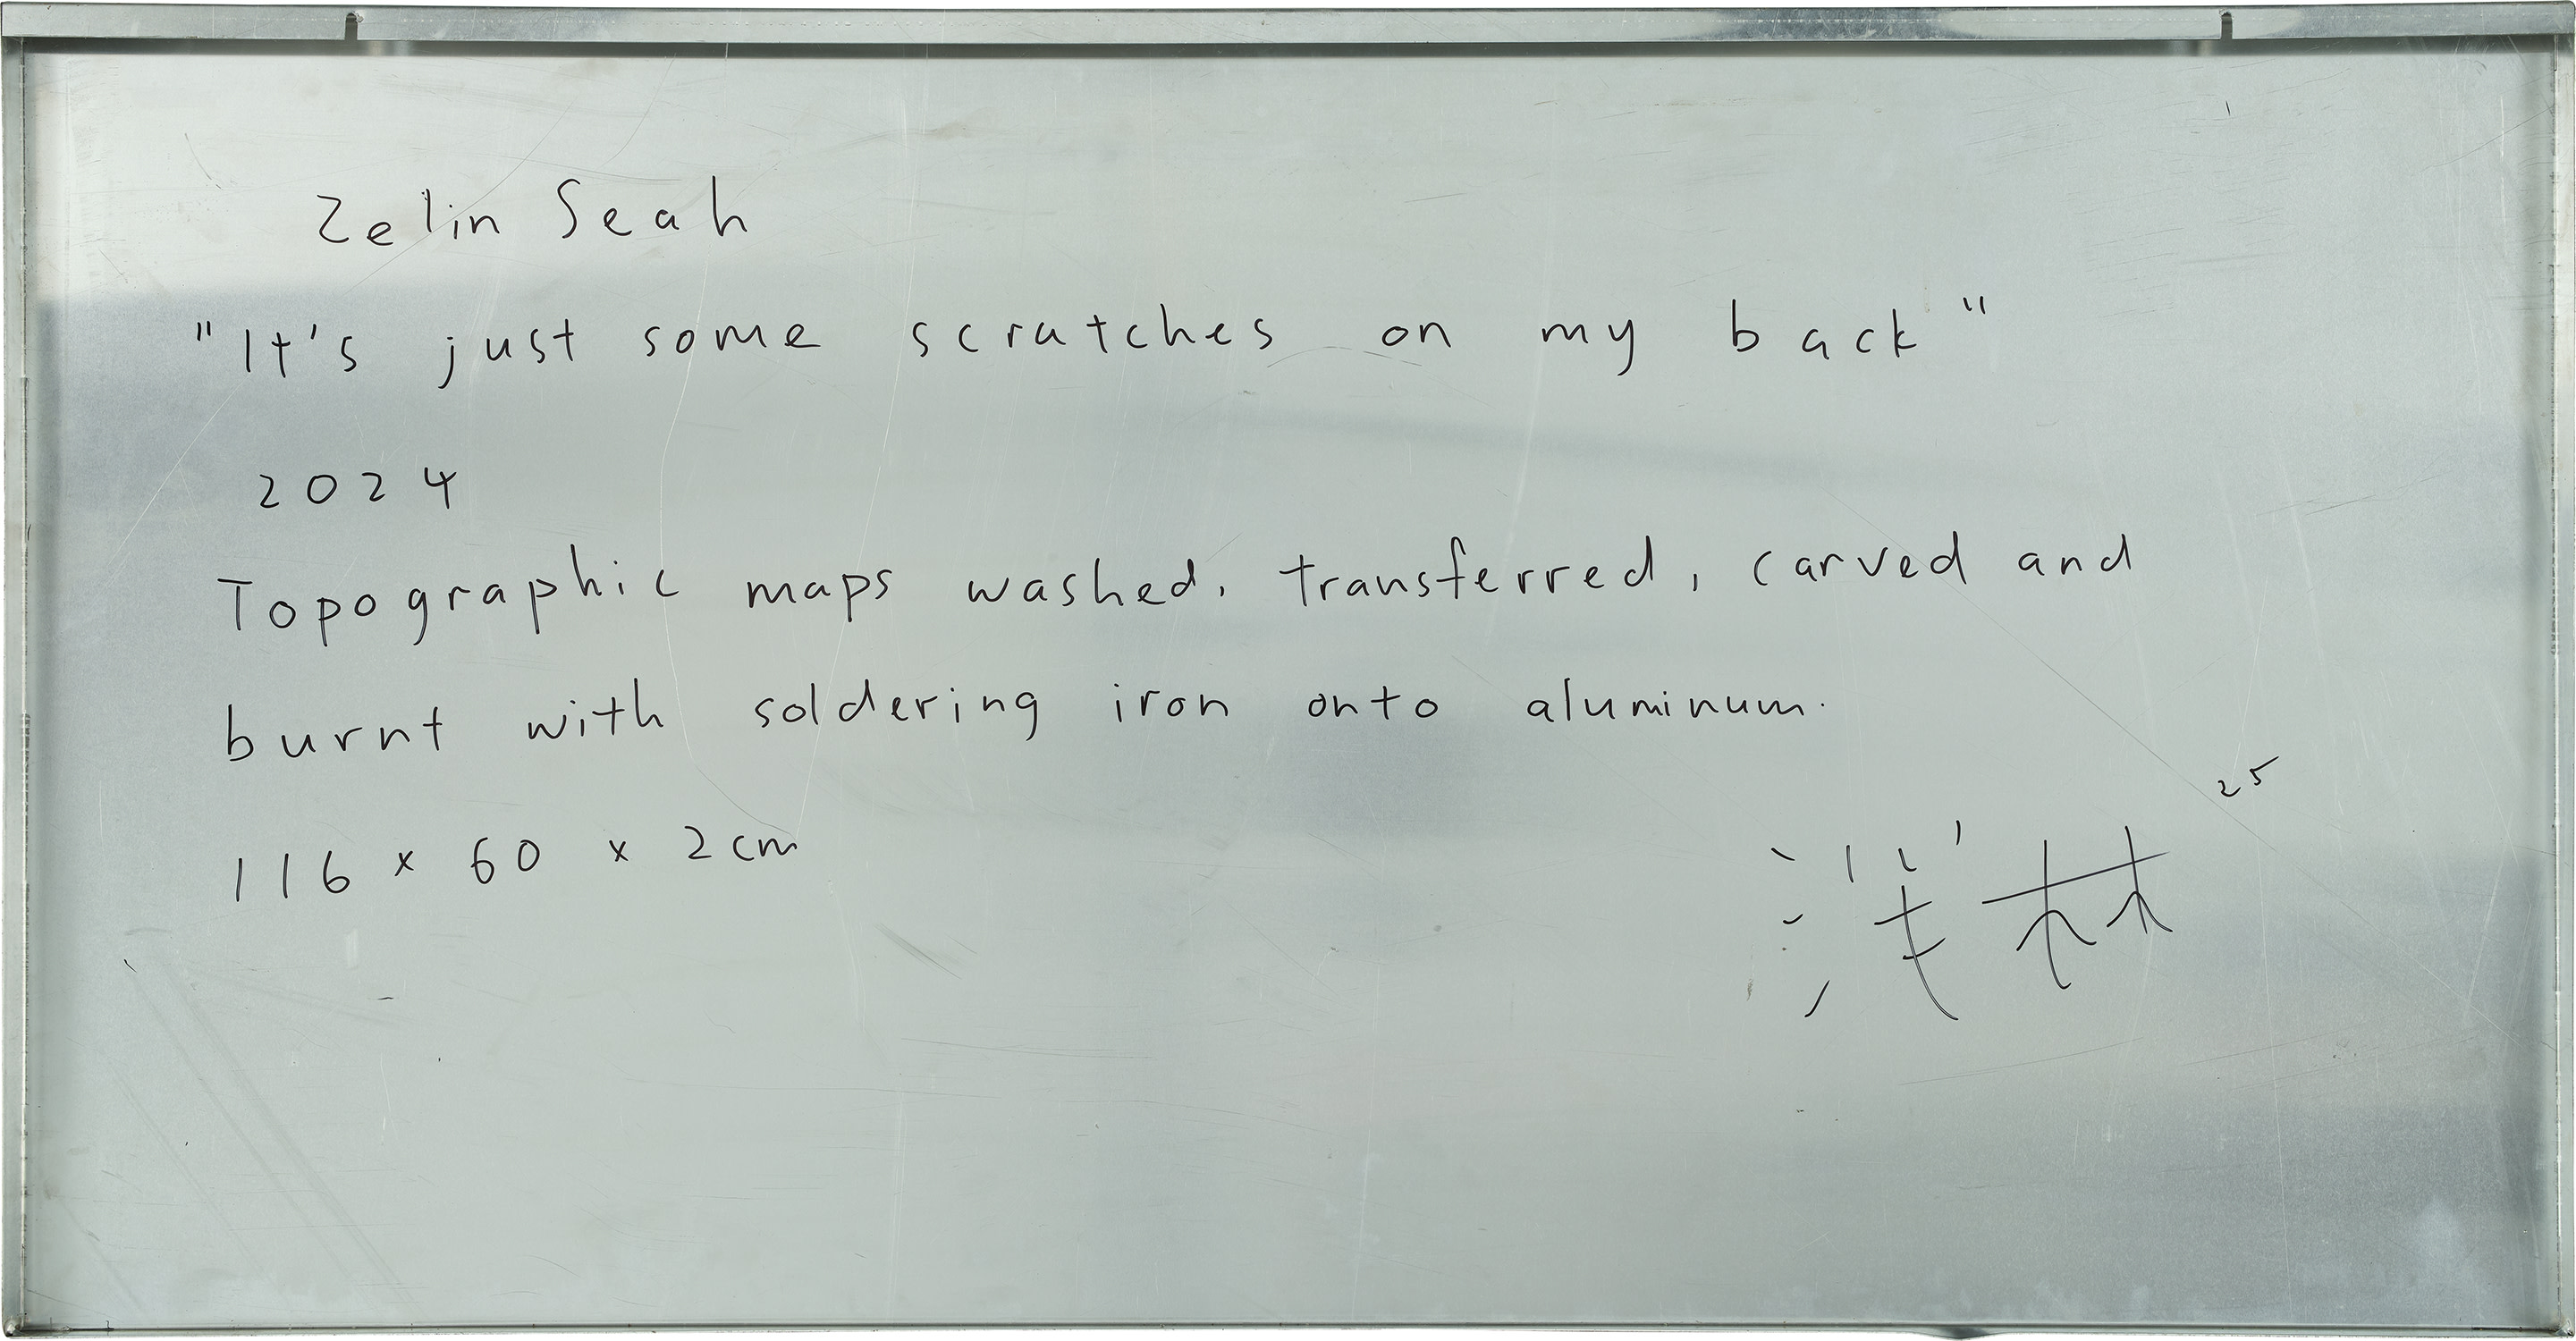 Zelin Seah
"It's just some scratches on my back"
2024
Topographic maps washed, transferred, carved and
burnt with soldering iron onto aluminum.
116 x 60 x 2cm
25
泽林